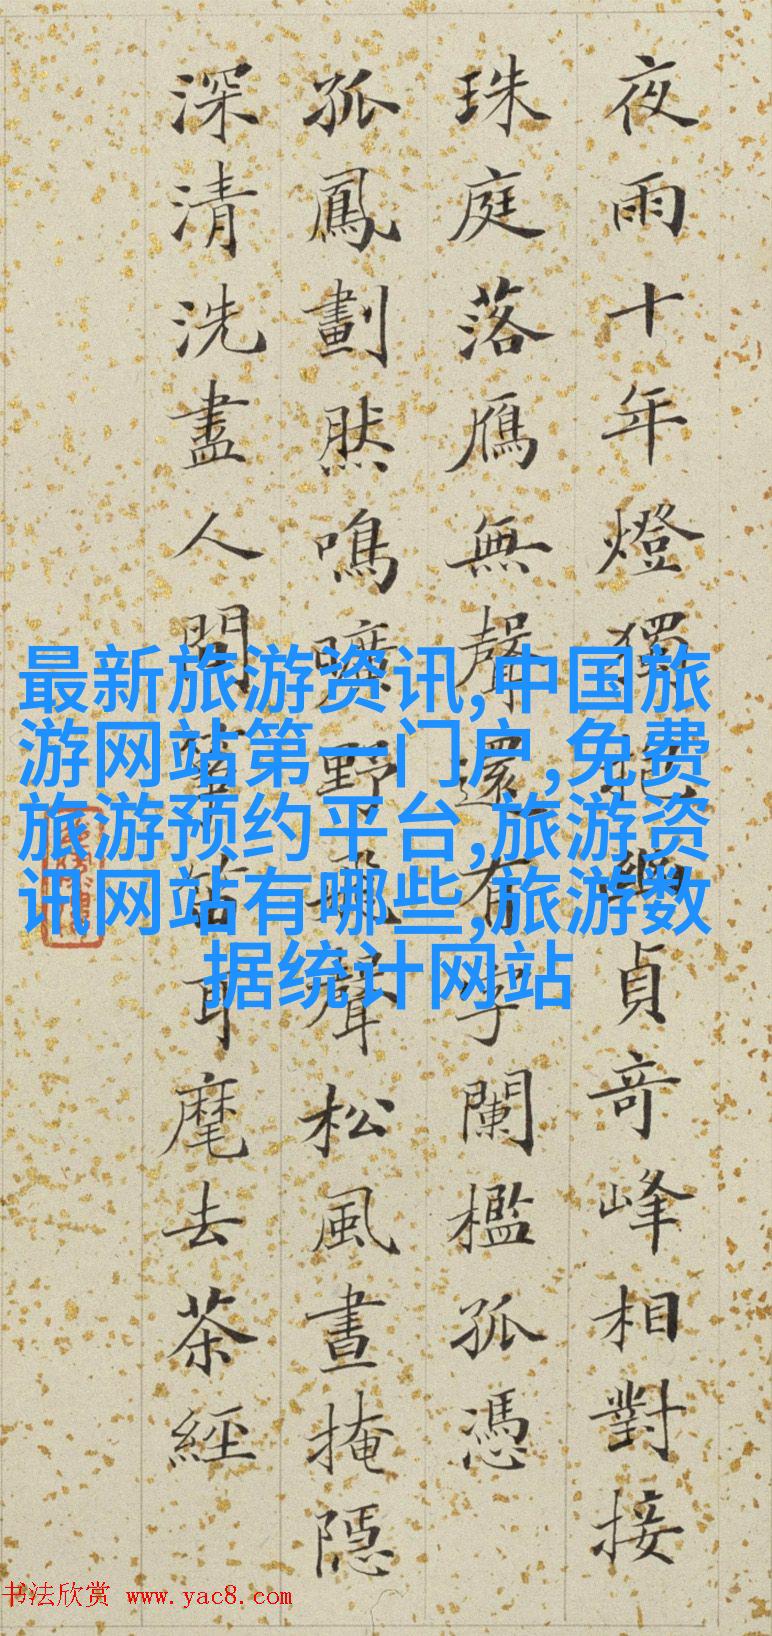 夜雨十年燈獨編貞奇峰相對接
珠庭落鴈無聲還有字闌檻孤憑
孤鳳劃然鳴曠野聲松風晝掩隱
深清洗盡人間箏笛耳麾去茶經
最新旅游资讯,中国旅
游网站第一门户,免费
旅游预约平台,旅游资
讯网站有哪些,旅游数
据统计网站
书法欣赏 www.yac8.com